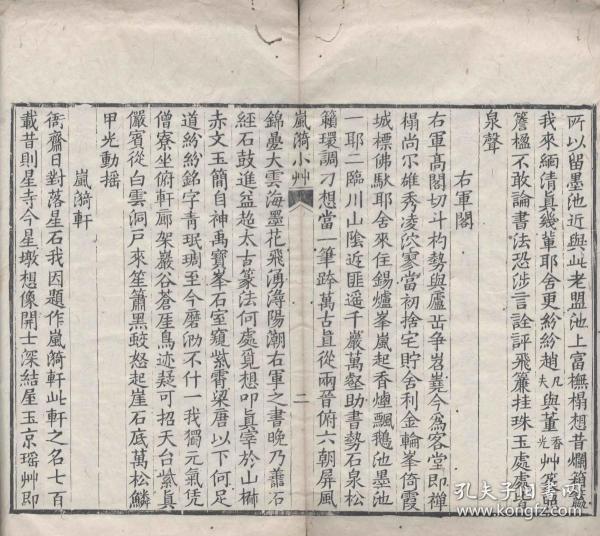 所以留墨池近與此老盟池上富橅榻想昔爛箱
我來緬清真幾輩耶舍更紛紛趙凡夫與董香光艸篆
簷楹不敢論書法恐涉言詮評飛簾挂珠玉處處
泉聲
右軍閣
右軍高閣切斗杓勢與廬岳爭岧嶤今為客堂即禪
榻尚尔雄秀凌泬寥當初捨宅貯舍利金輪峯倚霞
城標佛馱耶舍來住錫爐峯嵐起香爞飄鵝池墨池
一耶二臨川山陰近匪遥千巖萬壑助書勢石泉松
籟環調刁想當一筆跨萬古直從兩晉俯六朝屏風
嵐漪小艸
二
錦疊大雲海墨花飛湧潯陽潮右軍之書晚乃蕭
經石鼓進益超太古篆法何處覓想叩真宰於山椒
赤文玉簡自神禹寶峯石室窺紫霄梁唐以下何足
道紛紛銘字青珉琱至今磨泐不什一我獨元氣凭
僧寮坐俯軒廊架巖谷蒼厓鳥迹疑可招天台紫真
儼賓從白雲洞戶來笙簫黑蛟怒起崖石底萬松鱗
甲光動摇
嵐漪軒
衙齋日對落星石我因題作嵐漪軒此軒之名七百
載昔則星寺今星墩想像開士深結屋玉京瑶艸即
孔夫子旧书网
www.kongfz.com